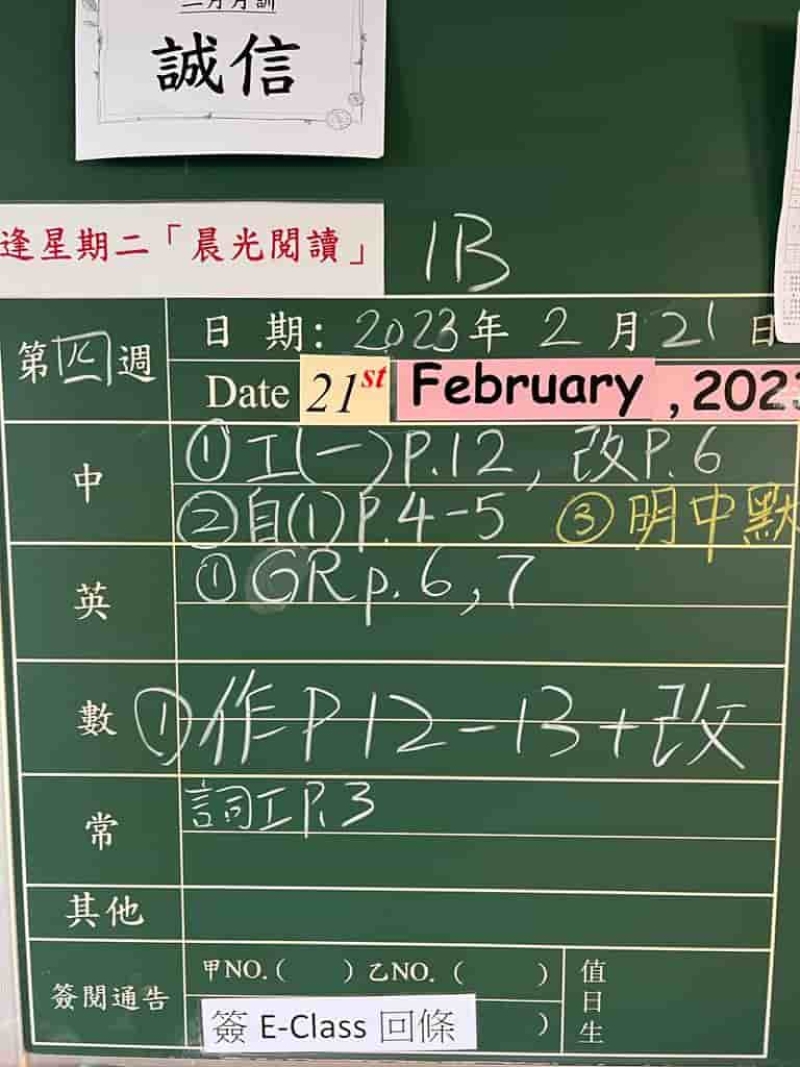 二月月訓
誠信
逢星期二「晨光閱讀」
1B
第四週
日期: 2023年2月21日
Date 21st February, 2023
中
①工(一)P.12, 改P.6
②自(1)P.4-5 ③明中默
英
①GR p.6,7
數
①作P12-13+改
常
詞工P.3
其他
簽閱通告
甲NO.( ) 乙NO. ( )
簽 E-Class 回條 )
值日生